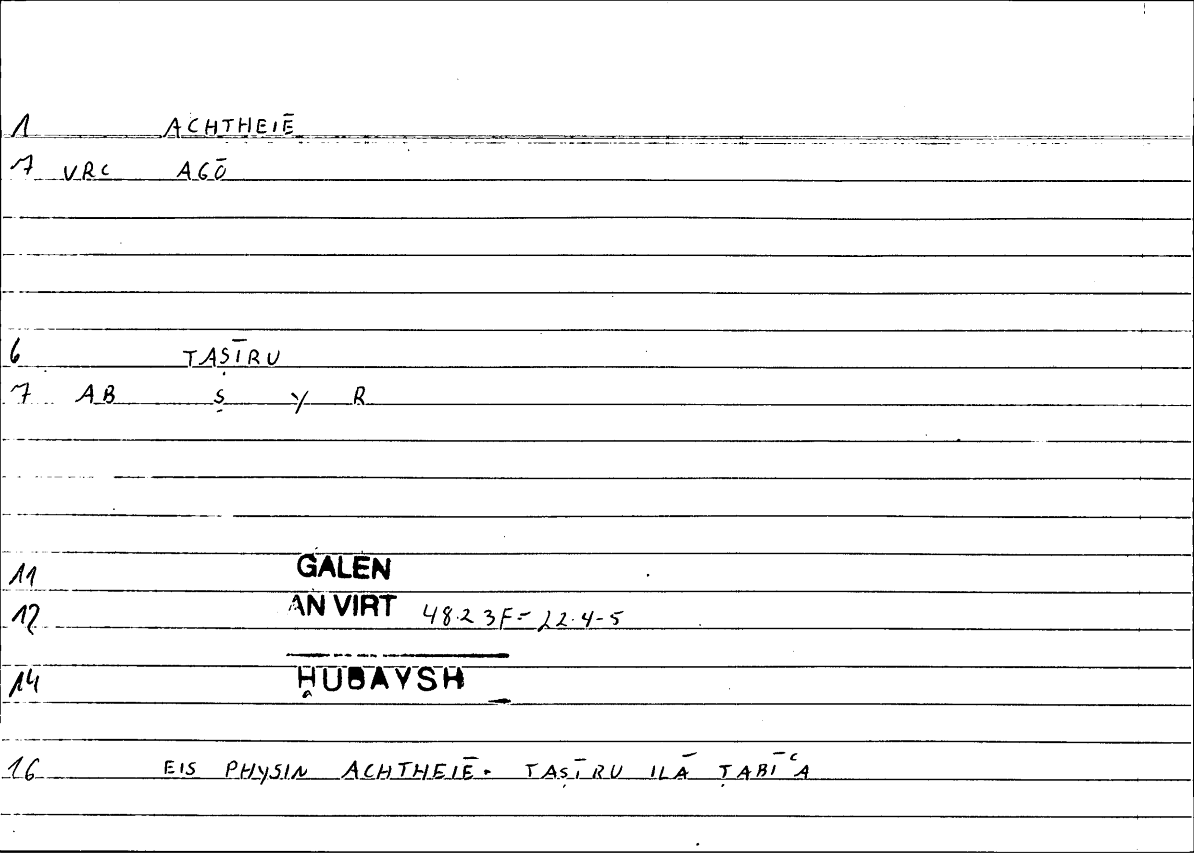 1 ACHTHEIĒ
7 VRC AGŌ
6 TAṢĪRU
7 AB Ṣ Y R
11 GALEN
12 AN VIRT 48.23F = 22.4-5
14 ḤUBAYSH
16 EIS PHYSIN ACHTHEIĒ. TAṢĪRU ILĀ ṬABĪʿA